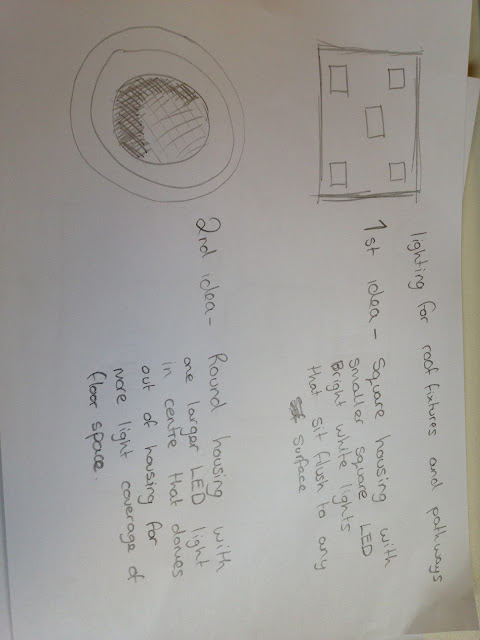 lighting for roof fixtures and pathways
1st idea - Square housing with
smaller square LED
Bright white lights
that sit flush to any
surface
2nd idea - Round housing with
one larger LED light
in centre that domes
out of housing for
more light coverage of
floor space.